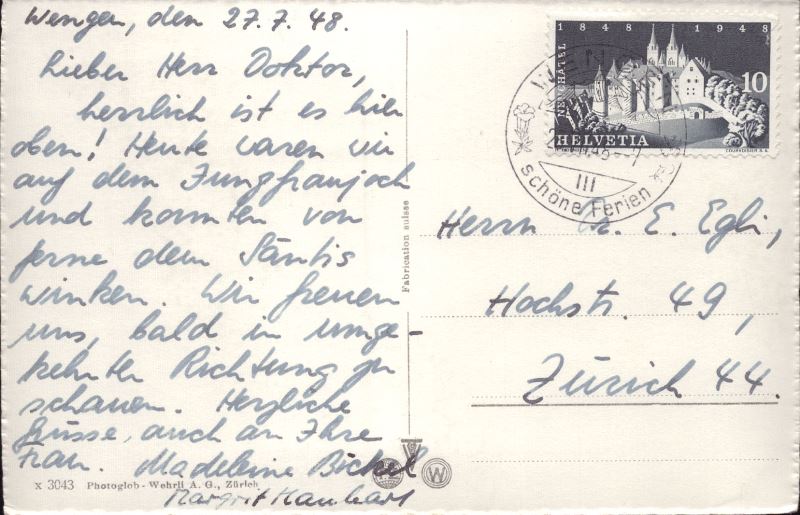 Wengen, den 27.7.48.
Lieber Herr Doktor,
herrlich ist es hier
oben! Heute waren wir
auf dem Jungfraujoch
und konnten von
ferne dem Säntis
winken. Wir freuen
uns, bald in umge-
kehrter Richtung zu
schauen. Herzliche
Grüsse, auch an Ihre
Frau. Madeleine Bickel
Margrit
x 3043 Photoglob - Wehrli A. G., Zürich
Fabrication suisse
1848 1948
NEUCHÂTEL
10
HELVETIA
COURVOISIER S.A.
III
schöne Ferien
Herrn Dr. E. Egli,
Hochstr. 49,
Zürich 44.
W